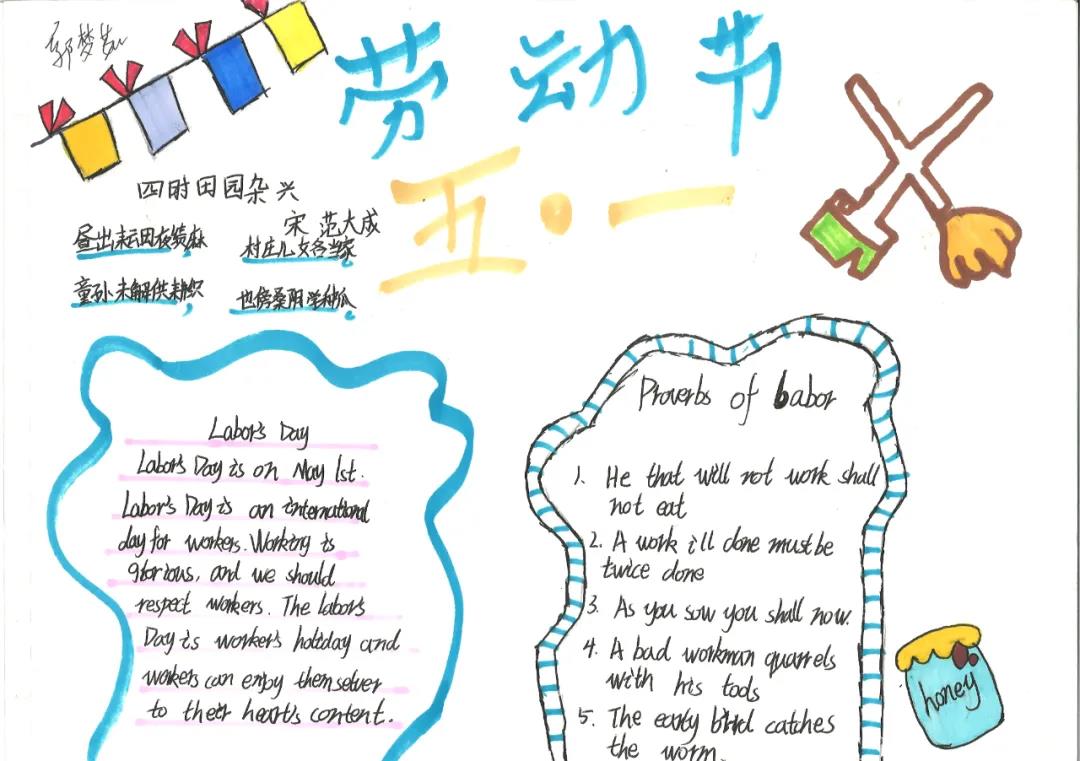 郭梦如
劳动节
五·一
四时田园杂兴
宋 范大成
昼出耘田夜绩麻,
村庄儿女各当家。
童孙未解供耕织,
也傍桑阴学种瓜。
Labor's Day
Labor's Day is on May 1st.
Labor's Day is an international
day for workers. Working is
glorious, and we should
respect workers. The labor's
Day is worker's holiday and
workers can enjoy themselver
to their heart's content.
Proverbs of babor
1. He that will not work shall
not eat
2. A work i'll done must be
twice done
3. As you sow you shall now.
4. A bad workman quarrels
with his tools
5. The early bird catches
the worm.
honey